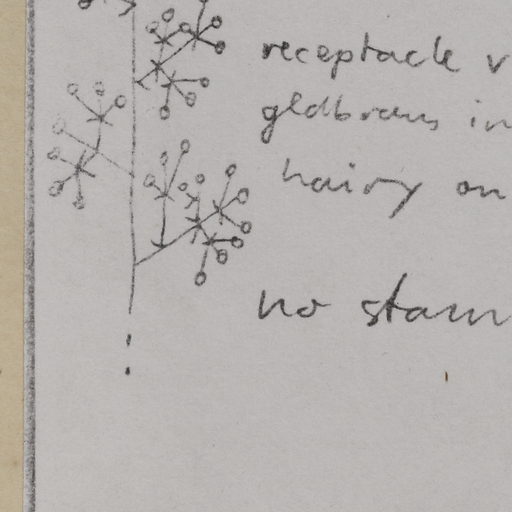 receptacle v
glabrous in
hairy on
no stam